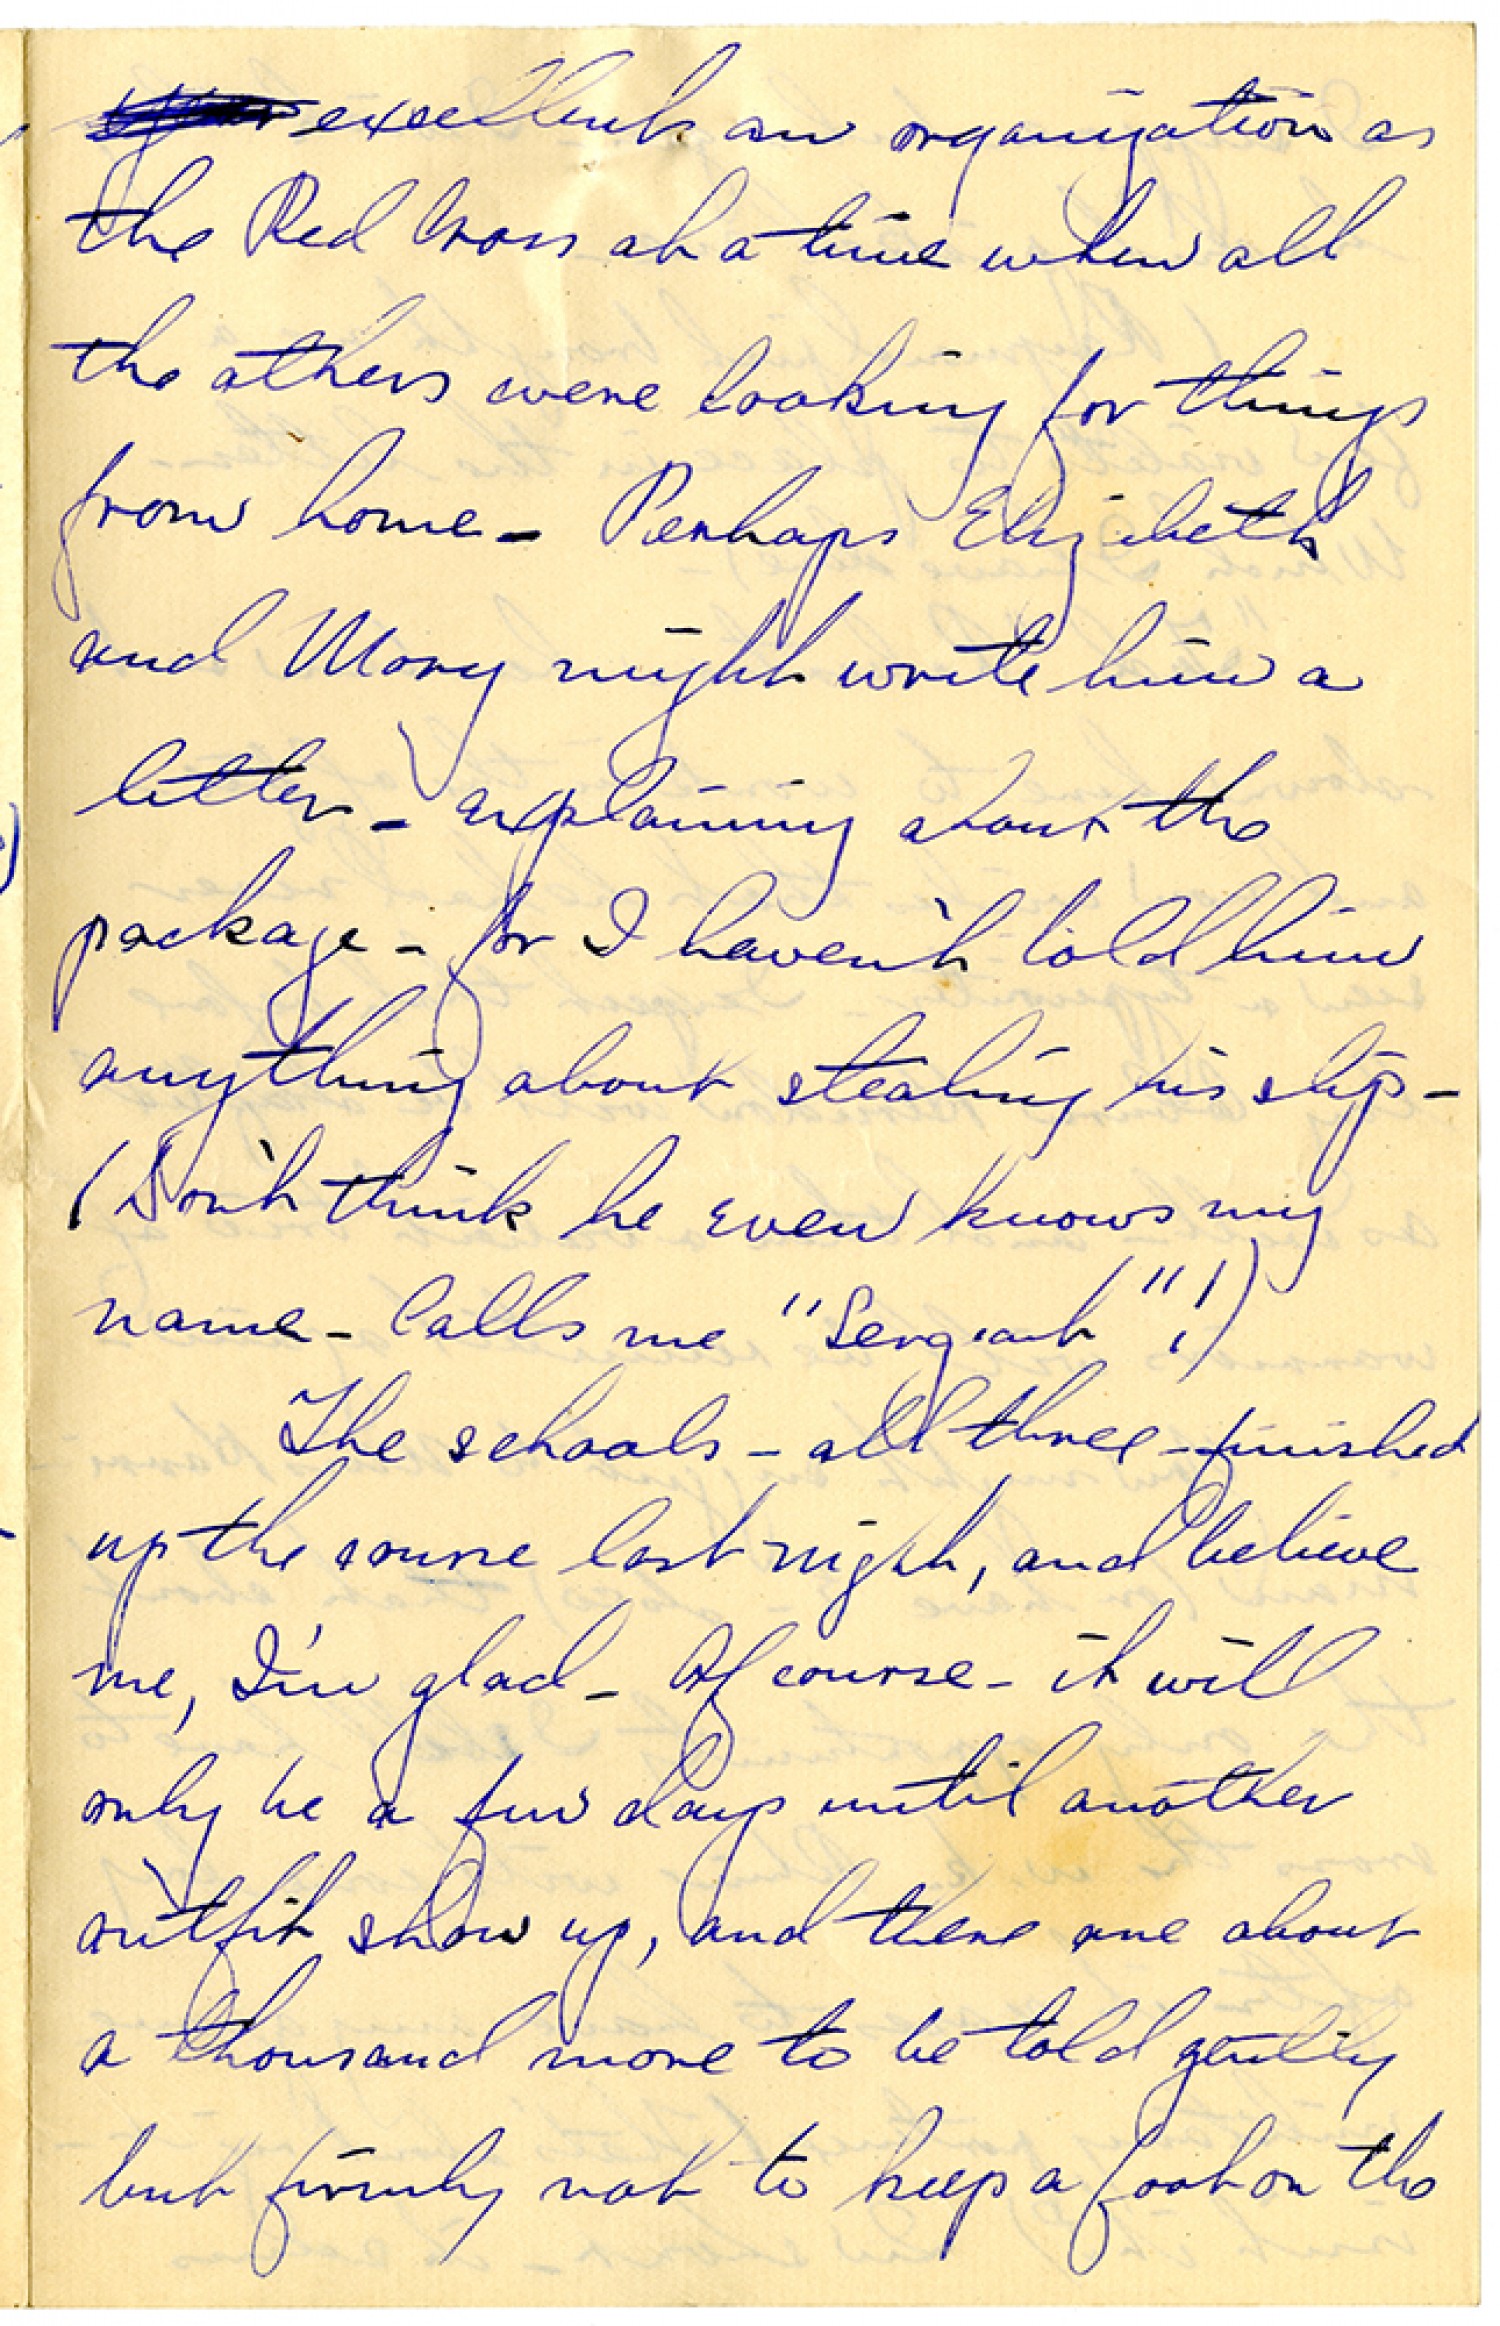 excellent an organization as
the Red Cross at a time when all
the others were looking for things
from home - Perhaps Elizabeth
and Mary might write him a
letter - explaining about the
package - for I haven't told him
anything about stealing his slip -
(Don't think he even knows my
name - Calls me "Sergeant"!)
The schools - all three - finished
up the course last night, and believe
me, I'm glad - Of course - it will
only be a few days until another
outfit show up, and there are about
a thousand more to be told gently
but firmly not to keep a foot on the